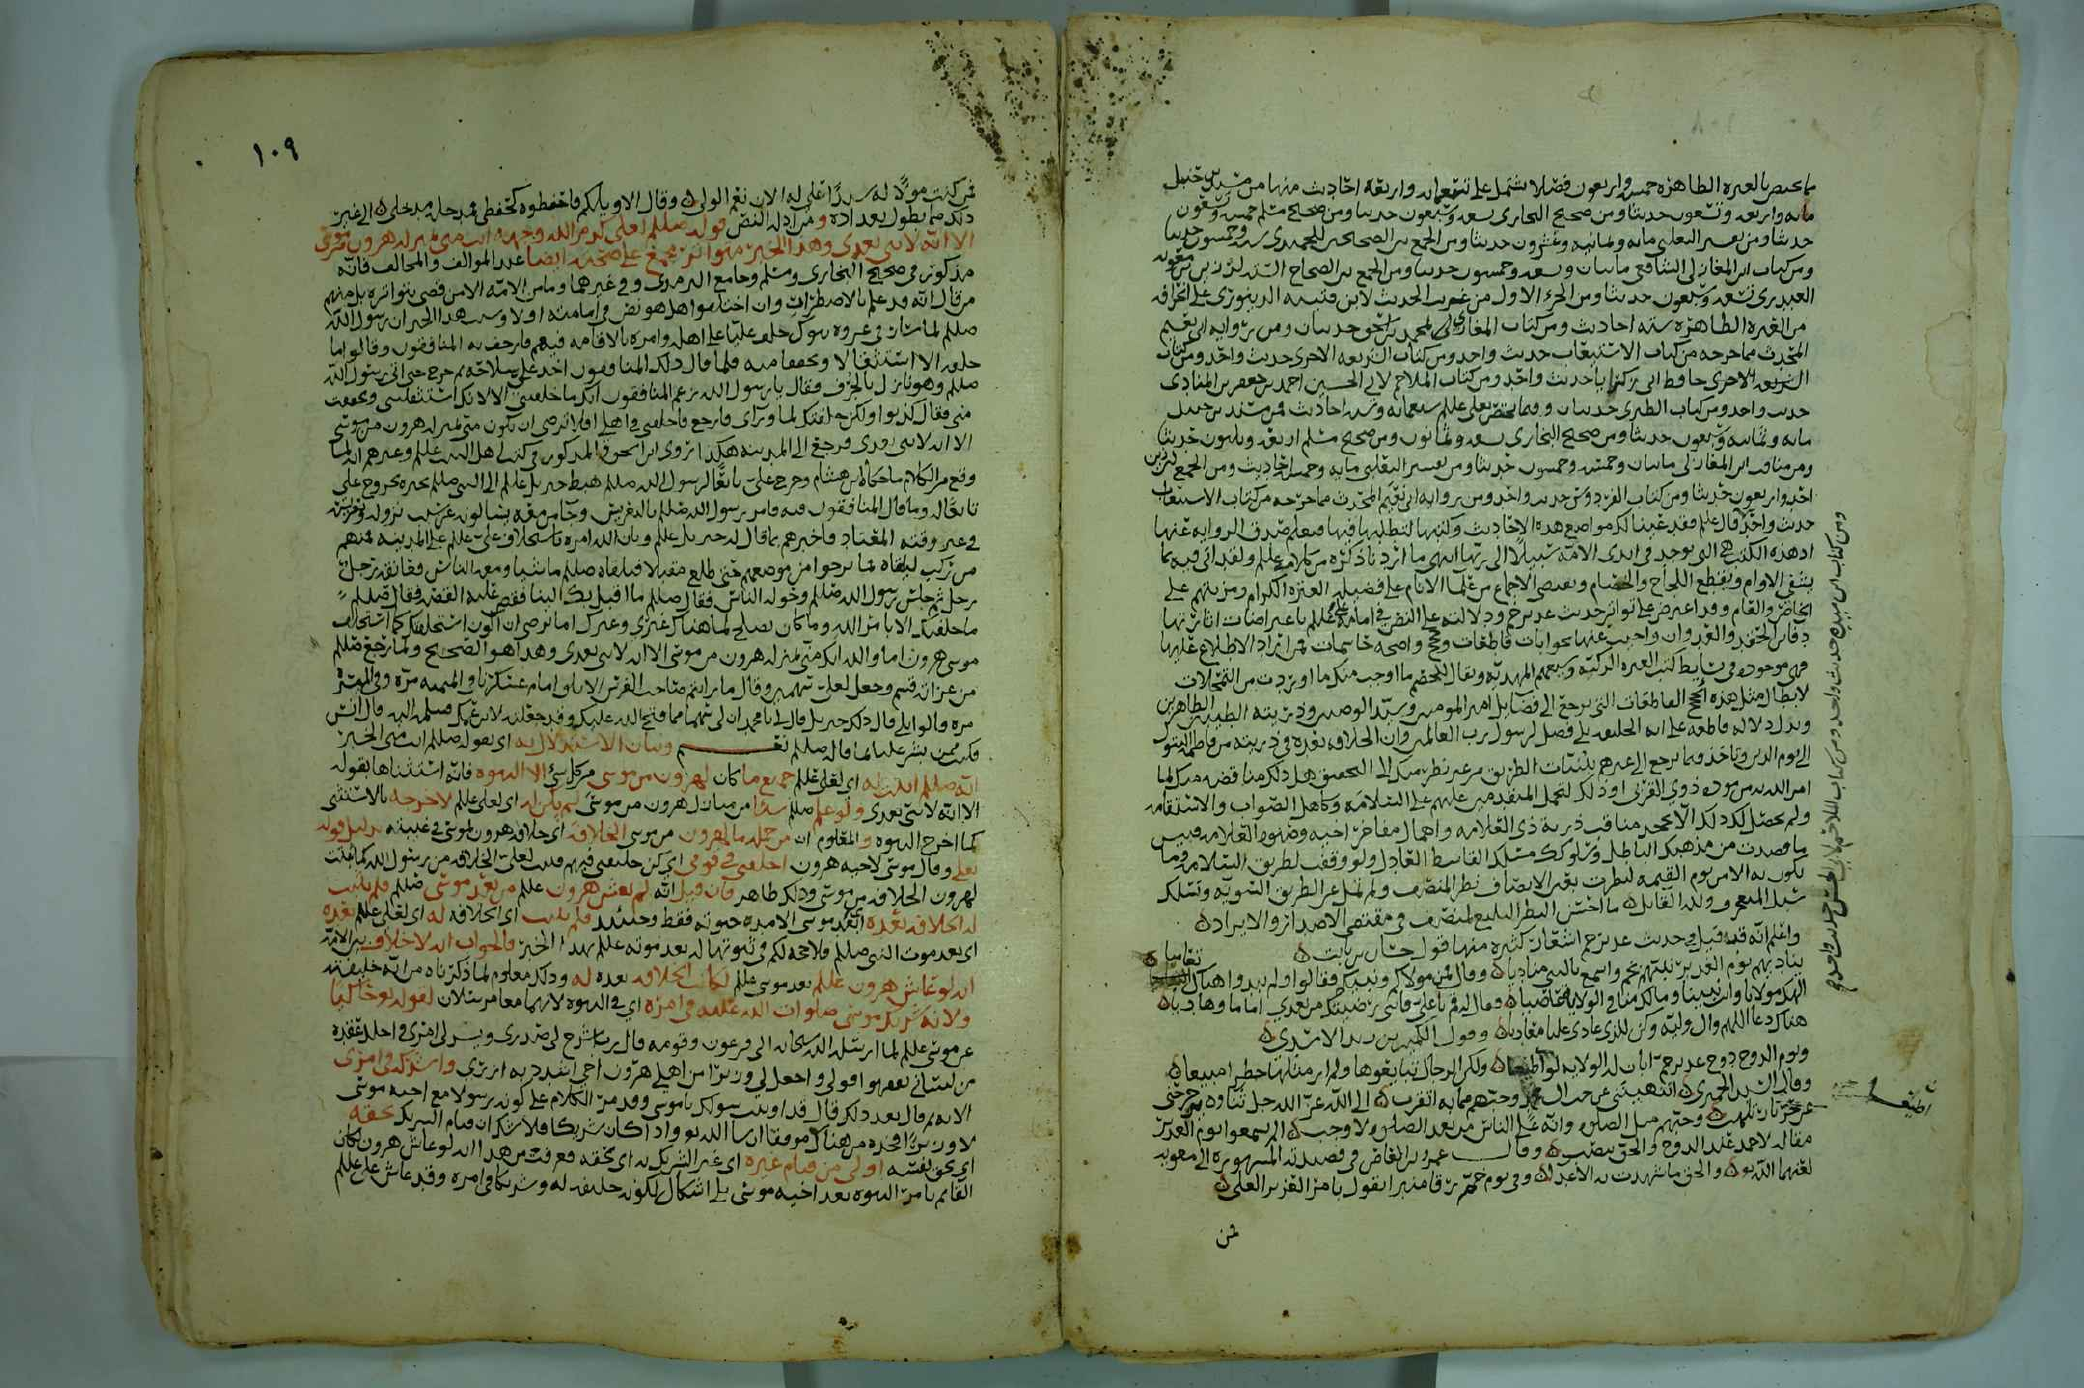 ما يختص بالعترة الطاهرة خمسة واربعون فصلا تشتمل على تسعمائة واربعة احاديث منها من مسند بن حنبل
مائة واربعة وتسعون حديثا ومن صحيح البخاري تسعة وسبعون حديثا ومن صحيح مسلم خمسة وتسعون
حديثا ومن تفسير الثعلبي مائة وثمانية وعشرون حديثا ومن الجمع بين الصحيحين للحميدي ستة وخمسون حديثا
ومن كتاب ابن المغازلي الشافعي مائتان وتسعة وخمسون حديثا ومن الجمع بين الصحاح الستة لرزين بن معوية
العبدري تسعة وسبعون حديثا ومن الجزء الاول من غريب الحديث لابن قتيبة الدينوري على انحرافه
من العترة الطاهرة ستة احاديث ومن كتاب المغازي لمحمد بن اسحق حديثان ومن رواية ابي نعيم
المحدث مما خرجه من كتاب الاستيعاب حديث واحد ومن كتاب الشريعة الاجري حديث واحد ومن كتاب
حديث واحد ومن كتاب الطبري حديثان وفيما يختص بعلي علم سبعمائة وستة احاديث فمن مسند بن حنبل
مائة وثمانية وسبعون حديثا ومن صحيح البخاري تسعة وثمانون ومن صحيح مسلم اربعة وثلثون حديثا
ومن مناقب ابن المغازلي مائتان وخمسة وخمسون حديثا ومن تفسير الثعلبي مائة وخمسة احاديث ومن الجمع لرزين
احد واربعون حديثا ومن كتاب الفردوس حديث واحد ومن رواية ابي نعيم المحدث مما خرجه من كتاب الاستيعاب
حديث واحد قال علم فقد عينا لكم مواضع هذه الاحاديث وكتبها لتطلبها فيها فيعلم صدق الرواية عنها
اذ هذه الكتب هي التي توجد في ايدي الامة سبيلا الى ربها انتهى ما اردنا ذكره من كلامه علم ولقد اتى فيه بما
يشفي الاوام ويقطع اللجاج والخصام
الخاص والعام وقد اعترض على تواتر حديث غدير خم ودلالته على النص في امامة علي علم باعتراضات اثارتها
دفائن الحقد والعدوان واجيب عنها بجوابات قاطعات وحجج واضحة
فهي موجودة في بسائط كتب العترة الزكية وشيعتهم المهدية ويقال للخصم ما اوجب منك ما اوردت من التمحلات
لابطال مثل هذه الحجج القاطعات التي ترجع الى فضايل امير المومنين وسيد الوصيين وذريته الطيبين الطاهرين
وتدل دلالة قاطعة على انه الخليفة بلا فصل لرسول رب العالمين وان الخلافة بعده في ذريته من فاطمة البتول
الى يوم الدين
امر الله به من مودة ذوي القربى
ولم يحصل لك ذلك الا بجحد مناقب ذرية
ما قصدت من مذهبك الباطل وسلوك مسلك القاسط العادل ولو وقفت لطريق السلامة وما
يكون به الامن يوم القيمة لنظرت بعين الانصاف نظر المنصف ولم تمل عن الطريق السوية وتسلك
سبل المتعجرف ولله القايل ما احسن النظر البليغ لمنصف في مقتضى الاصدار والايراد
واعلم انه قد قيل في حديث غدير خم اشعار كثيرة منها قول حسان بن ثابت
يناديهم يوم الغدير نبيهم بخم واسمع بالنبي مناديا وقال فمن مولاكم ونبيكم فقالوا ولم يبدوا هناك التعاميا
الهك مولانا وانت نبينا ومالك منا في الولاية عاصيا فقال له قم يا علي فانني رضيتك من بعدي اماما وهاديا
هناك دعا اللهم وال وليه وكن للذي عادى عليا معاديا وقول الكميت بن زيد الاسدي
ويوم الدوح دوح غدير خم ابان له الولاية لو اطيعا ولكن الرجال تبايعوها ولم ار مثلها خطرا مبيعا
وقال السيد الحميري
مقاله لاحمد عند الدوح والحق ينصب وقال عمرو بن العاص في قصيدته المشهورة الى معوية
لعنهما الله تع والحق ما شهدت به الاعدا وفي يوم خم رقا منبرا يقول بامر العزيز العلي
فمن
١٠٩
فمن كنت مولا له سيدا علي له الان نعم الولي وقال الا ويلكم فاحفظوه كحفظي فمدخله مدخلي الى غير
ذلك مما يطول تعداده ومن ادلة النص قوله صلعم لعلي كرم الله وجهه انت مني بمنزلة هرون من موسى
الا انه لا نبي بعدي وهذا الخبر متواتر مجمع على صحته ايضا عند الموالف والمخالف فانه
مذكور في صحيح البخاري ومسلم وجامع الترمذي وفي غيرهما وما من الامة الا من قضى بتواتره بل منهم
من قال انه قد علم بالاضطرار وان اختلفوا هل هو نص في امامته او لا وسبب هذا الخبر ان رسول الله
صلعم لما سار في غزوة تبوك خلف عليا على اهله وامره بالاقامة فيهم فارجف به المنافقون وقالوا ما
خلفه الا استثقالا وتخففا منه فلما قال ذلك المنافقون اخذ علي سلاحه ثم خرج حتى اتى رسول الله
صلعم وهو نازل بالجرف فقال يا رسول الله زعم المنافقون انك ما خلفتني الا لانك استثقلتني وتخففت
مني فقال كذبوا ولكن خلفتك لما وراي فارجع فاخلفني في اهلي افلا ترضى ان تكون مني بمنزلة هرون من موسى
الا انه لا نبي بعدي فرجع الى المدينة هكذا روى ابن اسحق والمذكور في كتب اهل البيت علم وغيرهم انه لما
وقع من الكلام ما حكاه ابن هشام وخرج علي تابعا لرسول الله صلعم هبط جبريل علم الى النبي صلعم يخبره بخروج علي
تابعا له وما قال المنافقون فيه فامر رسول الله صلعم بالتعريس وجاء من معه يسالون عن سبب نزوله وتعريسه
في غير وقته المعتاد فاخبرهم بما قال له جبريل علم وبان الله امره باستخلاف علي علم على المدينة فمنهم
من ركب ليلقاه فما برحوا من موضعهم حتى طلع مقبلا فتلقاه صلعم ماشيا ومعه الناس فعانقه رجل
رجل ثم جلس رسول الله صلعم وحوله الناس فقال صلعم ما اقبل بك الينا فقص عليه القصة فقال صلعم
ما خلفتك الا بامر الله وما كان يصلح لما هناك غيري وغيرك اما ترضى ان اكون استخلفتك كما استخلف
موسى هرون اما والله انك مني بمنزلة هرون من موسى الا انه لا نبي بعدي وهذا هو الصحيح ولما رجع صلعم
من غزاته قسم وجعل لعلي سهمين وقال ما رايتم صاحب الفرس الابلق امام عسكرنا في الميمنة مرة وفي الميسرة
مرة قالوا بلى قال ذلك جبريل قال لي يا محمد ان لي سهما مما فتح الله عليك وقد جعلته لابن عمك فسلمه اليه قال انس
فكنت فيمن بشر عليا بما قال صلعم نعم وبيان الاستدلال به اي بقوله صلعم انت مني الخبر
انه صلعم اثبت له اي لعلي علم جميع ما كان لهرون من موسى من كل شيء الا النبوة فانه استثناها بقوله
الا انه لا نبي بعدي ولو علم صلعم شيئا من منازل هرون من موسى لم يكن له اي لعلي علم لاخرجه بالاستثنى
كما اخرج النبوة والمعلوم ان من جملة ما لهرون من موسى الخلافة اي خلافة هرون لموسى في غيبته بدليل قوله
تعلى وقال موسى لاخيه هرون اخلفني في قومي اي كن خليفتي فيهم فثبت لعلي الخلافة من رسول الله كما ثبتت
لهرون الخلافة من موسى وذلك ظاهر فان قيل انه لم يعش هرون علم من بعد موسى صلعم فلم تثبت
له الخلافة بعده اي بعد موسى الا مدة حيوته فقط وحينئذ فلم تثبت اي الخلافة له اي لعلي علم بعده
اي بعد موت النبي صلعم فلا حجة لكم في ثبوتها له بعد موته علم بهذا الخبر والجواب انه لا خلاف بين الامة
انه لو عاش هرون علم بعد موسى علم لكانت الخلافة بعده له وذلك معلوم لما ذكرناه من انه خليفته
ولانه شريك موسى صلوات الله عليه في امره اي في النبوة لانهما معا مرسلان لقوله تع حاكيا
عن موسى علم لما ارسله الله سبحانه الى فرعون وقومه قال رب اشرح لي صدري ويسر لي امري واحلل عقدة
من لساني يفقهوا قولي واجعل لي وزيرا من اهلي هرون اخي اشدد به ازري واشركه في امري
الاية ثم قال بعد ذلك قال قد اوتيت سولك يا موسى وقد مر الكلام على كونه رسولا مع اخيه موسى
لا وزيرا فحده من هناك موفقا ان شاء الله تع واذا كان شريكا فلا شك ان قيام الشريك بحقه
اي بحق نفسه اولى من قيام غيره اي غير الشريك به اي بحقه فعرفت من هذا انه لو عاش هرون لكان
القايم بامر النبوة بعد اخيه موسى بلا اشكال لكونه خليفة له وشريكا في امره وقد عاش علي علم